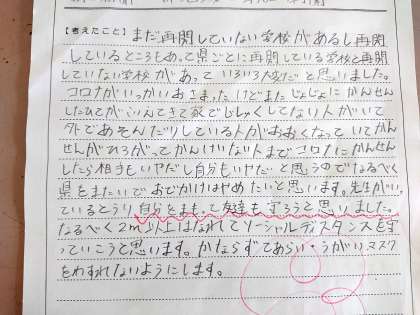 【考えたこと】まだ再開していない学校があるし再開
しているところもあって県ごとに再開している学校と再開
していない学校があっていろいろ大変だと思いました。
コロナがいっかいおさまったけどまたじょじょにかんせん
したひとがふえてきて家でじしゅくしてない人がいて
外であそんだりしている人がおおくなっていてかん
せんがひろがってかんけいない人までコロナにかんせん
したら相手もいやだし自分もいやだと思うのでなるべく
県をまたいでおでかけはやめたいと思います。先生がい
ているとうり自分をまもって友達も守ろうと思いました。
なるべく2m以上はなれてソーシャルディスタンスを守
っていこうと思います。かならずてあらい・うがい、マスク
をわすれないようにします。